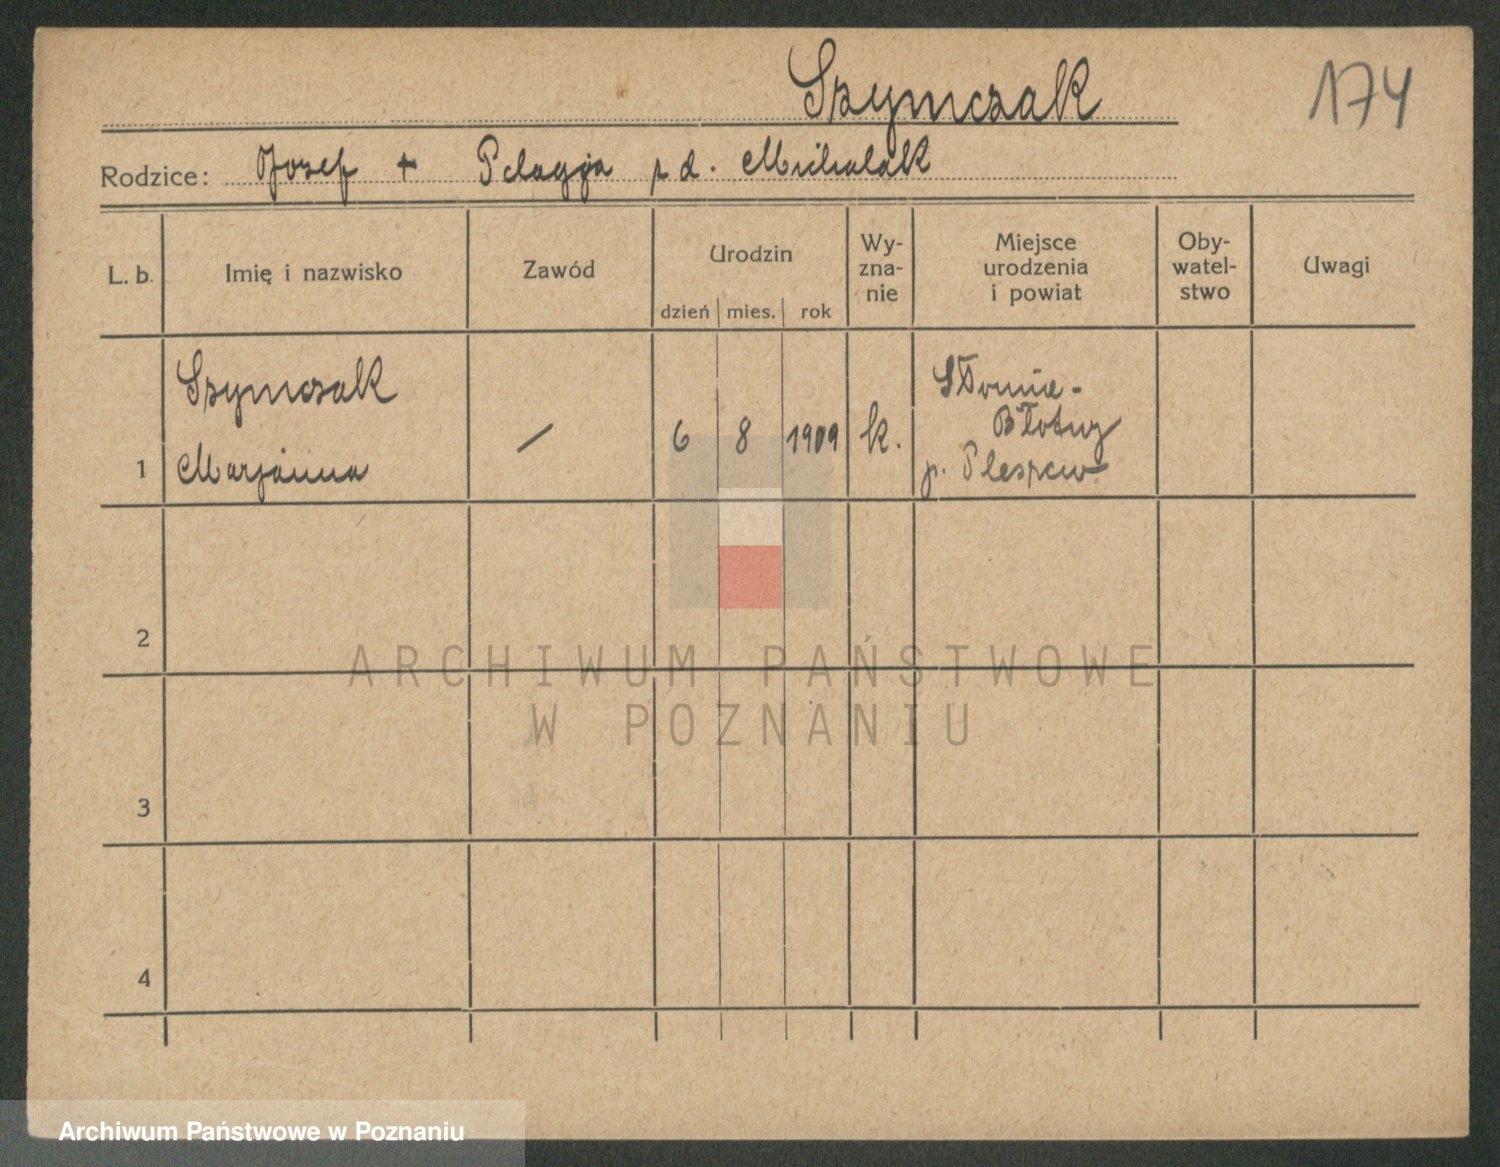 Szymczak
174
Rodzice: Jozef + Pelagja z d. Michalak
L. b.
Imię i nazwisko
Zawód
Urodzin
dzień mies. rok
Wy-
zna-
nie
Miejsce
urodzenia
i powiat
Oby-
watel-
stwo
Uwagi
1
Szymczak
Marjanna
/
6
8
1909
k.
Błotny
p. Pleszew
2
3
4
ARCHIWUM PAŃSTWOWE
W POZNANIU
Archiwum Państwowe w Poznaniu